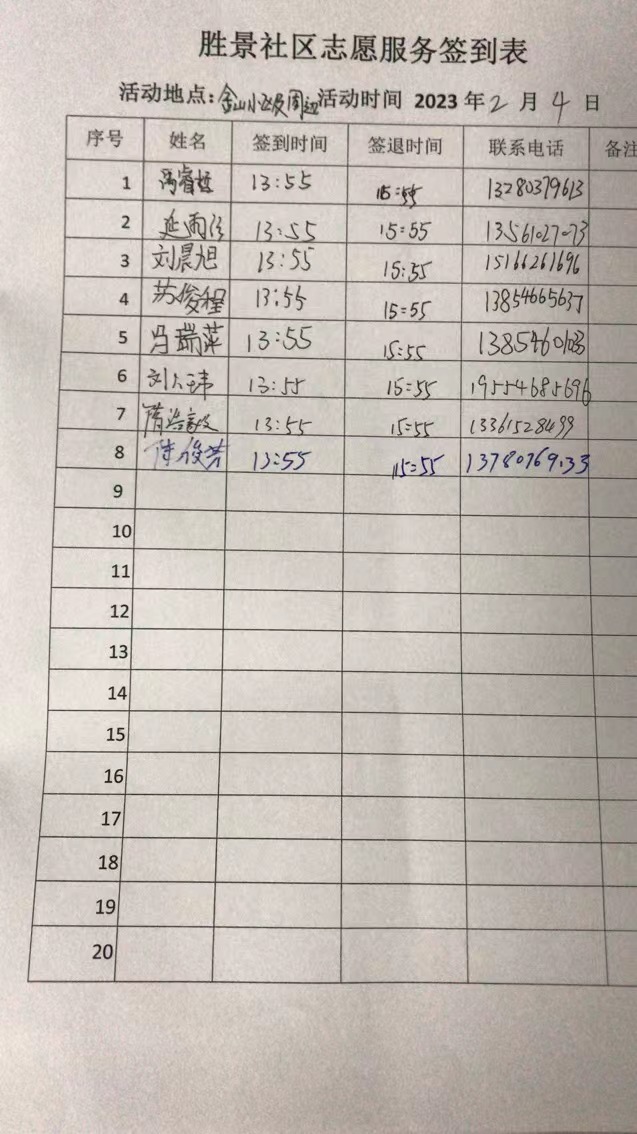 胜景社区志愿服务签到表
活动地点:金山小区及周边活动时间 2023年2月4日
序号 姓名 签到时间 签退时间 联系电话 备注
1 13:55 15:55 13280379613
2 13:55 15:55
3 刘晨旭 13:55 15:55 15166261696
4 苏俊程 13:55 15:55 13854665637
5 冯瑞萍 13:55 15:55
6 13:55 15:55 19554685696
7 13:55 15:55 13361528499
8 13:55 15:55
9
10
11
12
13
14
15
16
17
18
19
20